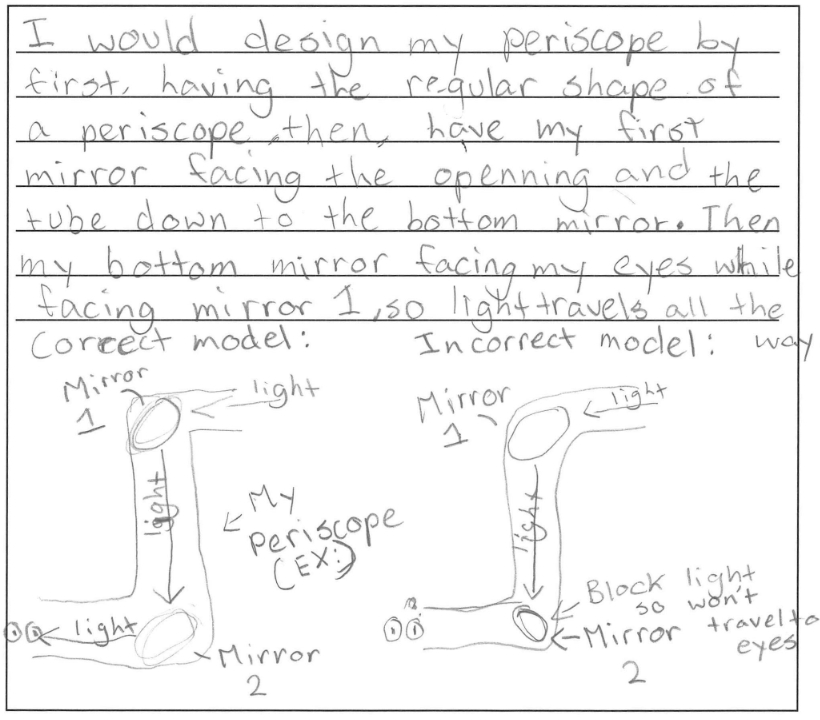 I would design my periscope by
first, having the regular shape of
a periscope, then, have my first
mirror facing the openning and the
tube down to the bottom mirror. Then
my bottom mirror facing my eyes while
facing mirror 1, so light travels all the
way
Correct model:
Incorrect model:
Mirror
1
light
light
My
periscope
(EX:)
light
Mirror
2
Mirror
1
light
light
Block light
so won't
travel to
eyes
Mirror
2